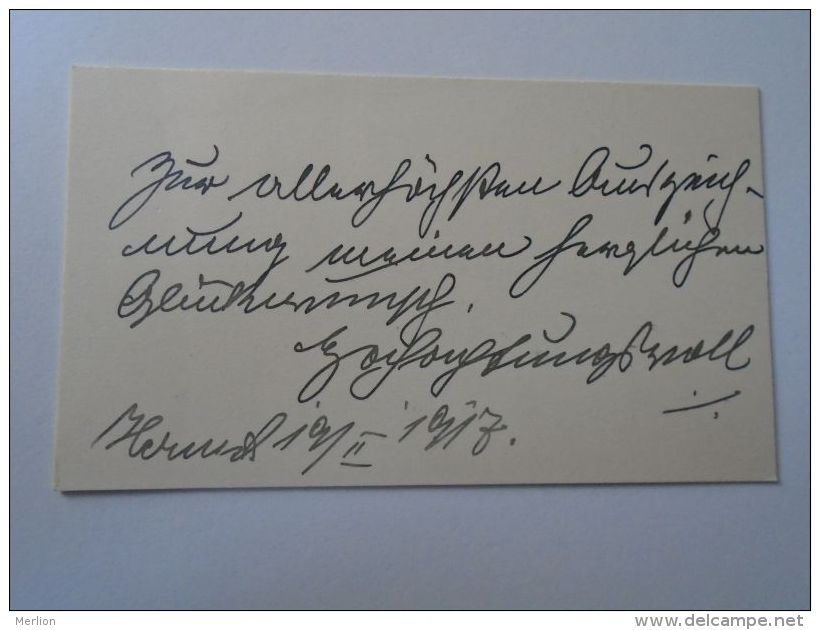 Zur allerhöchsten Auszeich-
nung meinen herzlichen
Glückwunsch.
Hochachtungsvoll
19/II 1917.
Merlion
delcampe.net